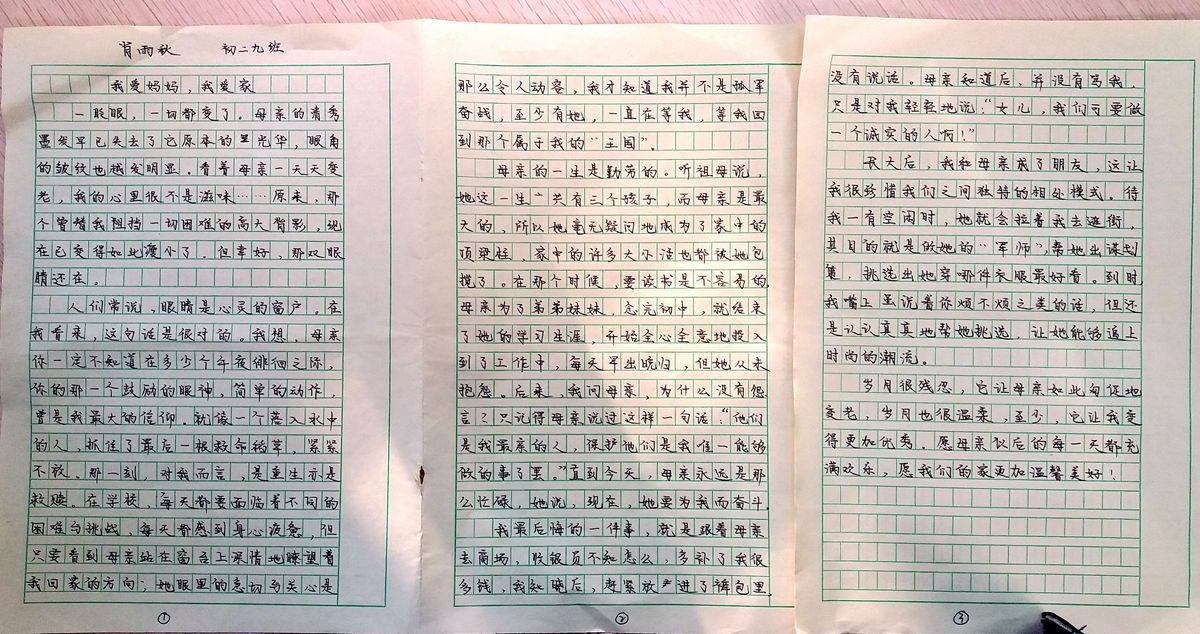 肖雨秋 初二九班
我爱妈妈，我爱家
一眨眼，一切都变了。母亲的青秀
墨发早已失去了它原本的光华，眼角
的皱纹也越发明显。看着母亲一天天变
老，我的心里很不是滋味……原来，那
个曾替我阻挡一切困难的高大背影，现
在已变得如此瘦小了。但幸好，那双眼
睛还在。
人们常说，眼睛是心灵的窗户。在
我看来，这句话是很对的。我想，母亲
你一定不知道在多少个午夜徘徊之际，
你的那一个鼓励的眼神，简单的动作，
曾是我最大的信仰。就像一个落入水中
的人，抓住了最后一根救命稻草，紧紧
不放。那一刻，对我而言，是重生亦是
救赎。在学校，每天都要面临着不同的
困难与挑战，每天都感到身心疲惫，但
只要看到母亲站在窗台上深情地瞭望着
我回家的方向，她眼里的急切与关心是
①
那么令人动容，我才知道我并不是孤军
奋战，至少有她，一直在等我，等我回
到那个属于我的“王国”。
母亲的一生是勤劳的。听祖母说，
她这一生共有三个孩子，而母亲是最
大的，所以她毫无疑问地成为了家中的
顶梁柱，家中的许多大小活也都被她包
揽了。在那个时候，要读书是不容易的，
母亲为了弟弟妹妹，念完初中，就结束
了她的学习生涯，开始全心全意地投入
到了工作中，每天早出晚归，但她从未
抱怨。后来，我问母亲，为什么没有怨
言？只记得母亲说过这样一句话：“他们
是我最亲的人，保护他们是我唯一能够
做的事了罢。”直到今天，母亲永远是那
么忙碌，她说，现在，她要为我而奋斗。
我最后悔的一件事，就是跟着母亲
去商场，收银员不知怎么，多补了我很
多钱，我知晓后，赶紧放进了裤包里
②
没有说话。母亲知道后，并没有骂我，
只是对我轻轻地说：“女儿，我们可要做
一个诚实的人啊！”
长大后，我和母亲成了朋友，这让
我很珍惜我们之间独特的相处模式。待
我一有空闲时，她就会拉着我去逛街，
其目的就是做她的“军师”，帮她出谋划
策，挑选出她穿哪件衣服最好看。到时
我嘴上虽说着你烦不烦之类的话，但还
是认认真真地帮她挑选，让她能够追上
时尚的潮流。
岁月很残忍，它让母亲如此匆促地
变老，岁月也很温柔，至少，它让我变
得更加优秀。愿母亲以后的每一天都充
满欢乐，愿我们的家更加温馨美好！
③